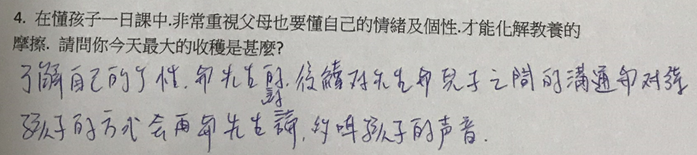 4. 在懂孩子一日課中.非常重視父母也要懂自己的情緒及個性.才能化解教養的
摩擦. 請問你今天最大的收穫是甚麼?
了解自己的个性.和先生的 後續对先生和兒子之間的溝通和对待
孩子的方式会再和先生討論, 孩子的声音.